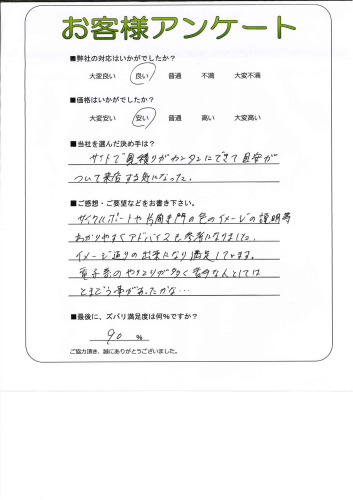 お客様アンケート
■弊社の対応はいかがでしたか?
大変良い 良い 普通 不満 大変不満
■価格はいかがでしたか?
大変安い 安い 普通 高い 大変高い
■当社を選んだ決め手は?
サイトで見積りがカンタンにできて目安が
ついて来店する気になった。
■ご感想・ご要望などをお書き下さい。
サイクルポートや片開き門の色のイメージの説明等
わかりやすくアドバイスも参考になりました。
イメージ通りの出来になり満足しています。
電子系のやりとりが多く苦手な人としては
とまどう事があったかな…
■最後に、ズバリ満足度は何%ですか?
90 %
ご協力頂き、誠にありがとうございました。